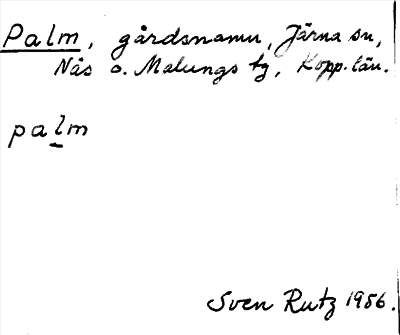 Palm, gårdsnamn, Järna sn,
Nås o. Malungs tg, Kopp. län.
palm
Sven Rutz 1986.